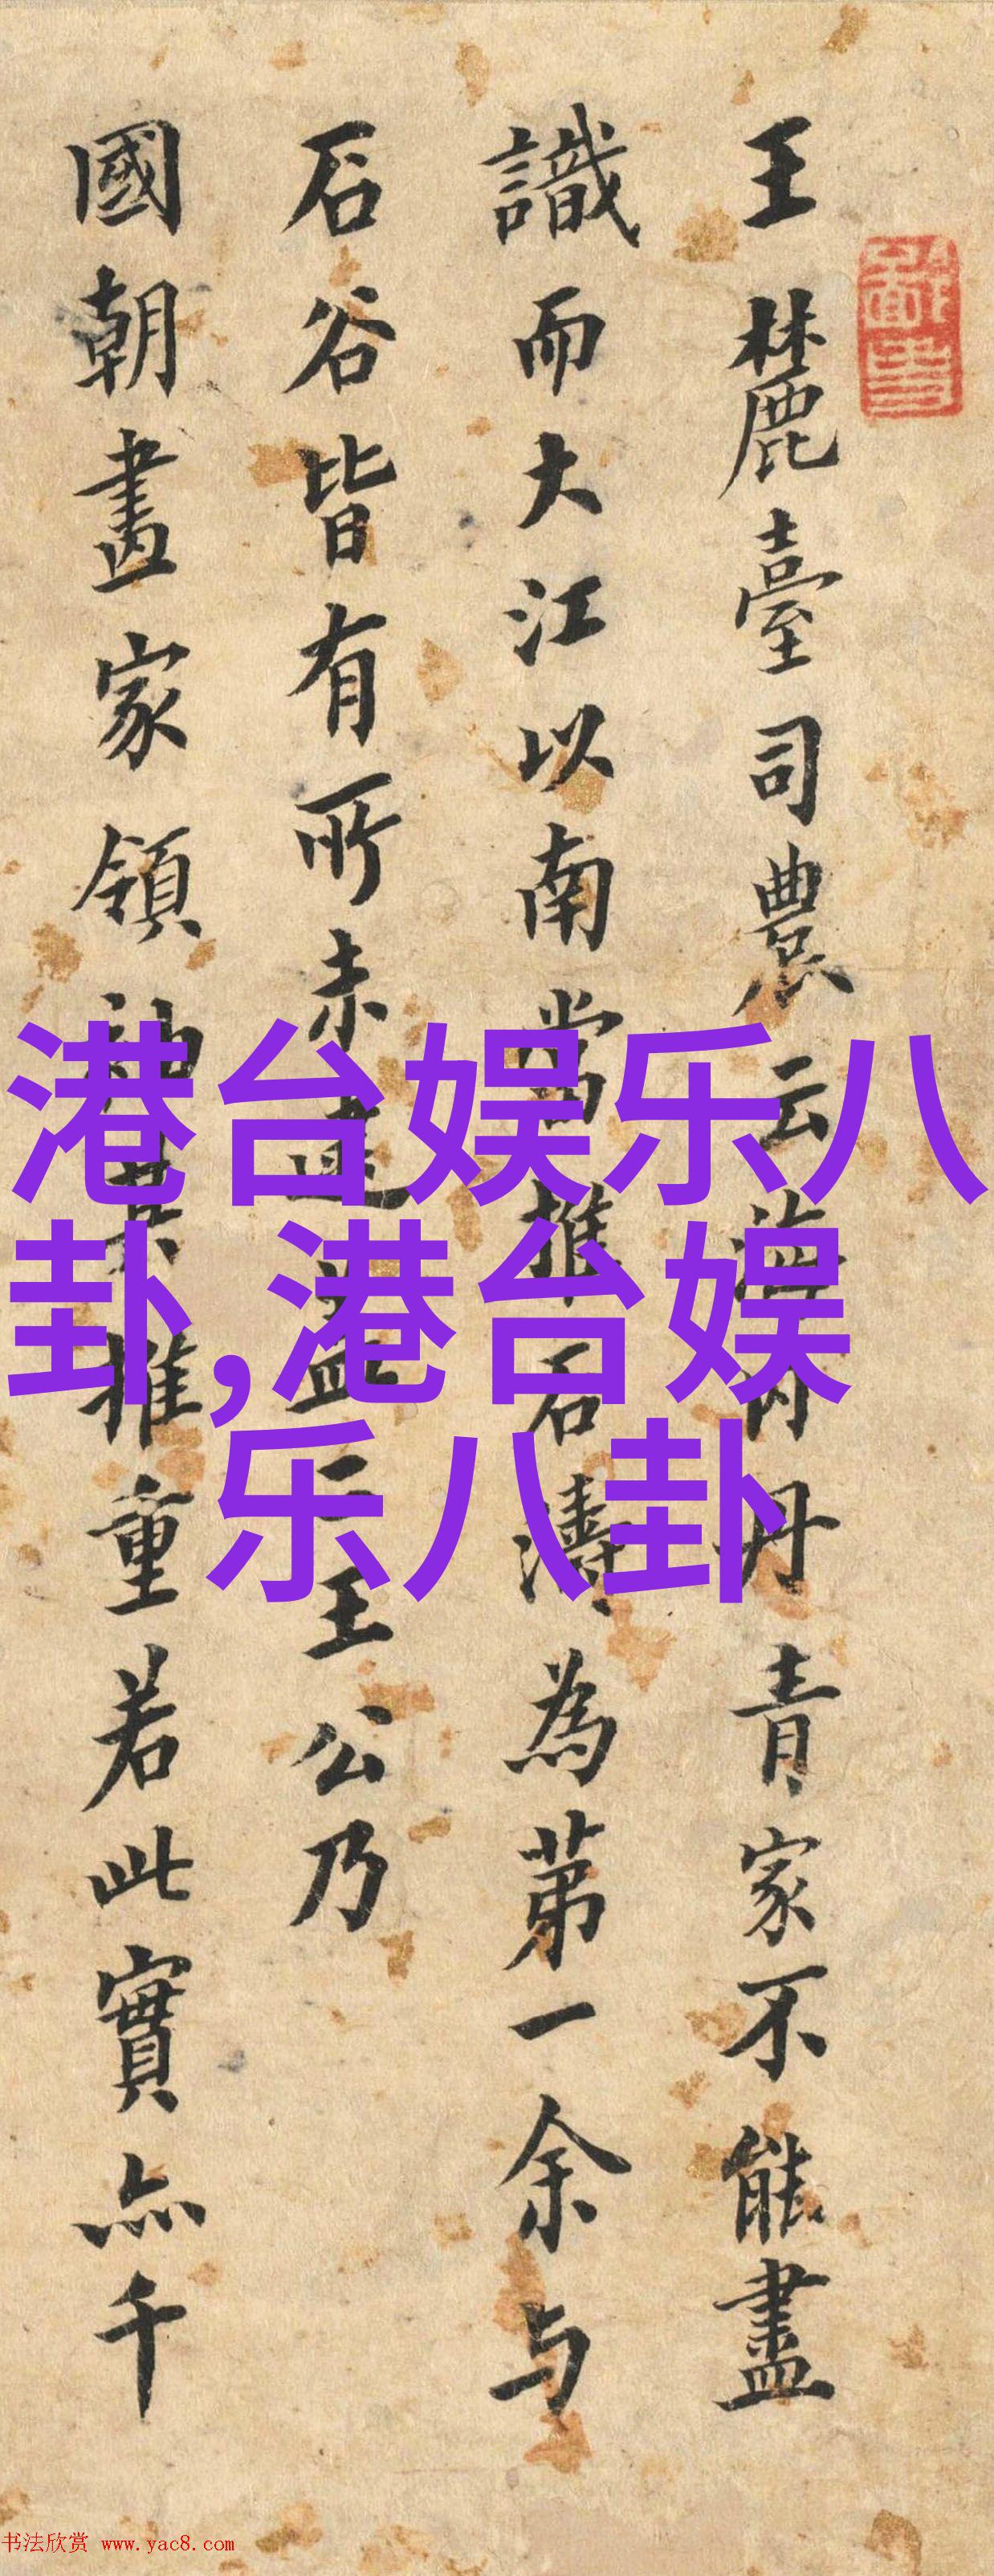 王麓臺司農云海内丹青家不能盡
識而大江以南當推石濤為第一余与
石谷皆有所未逮盖二王公乃
國朝畫家領袖推重若此實亦千
港台娱乐八
卦,港台娱
乐八卦
书法欣赏 www.yac8.com